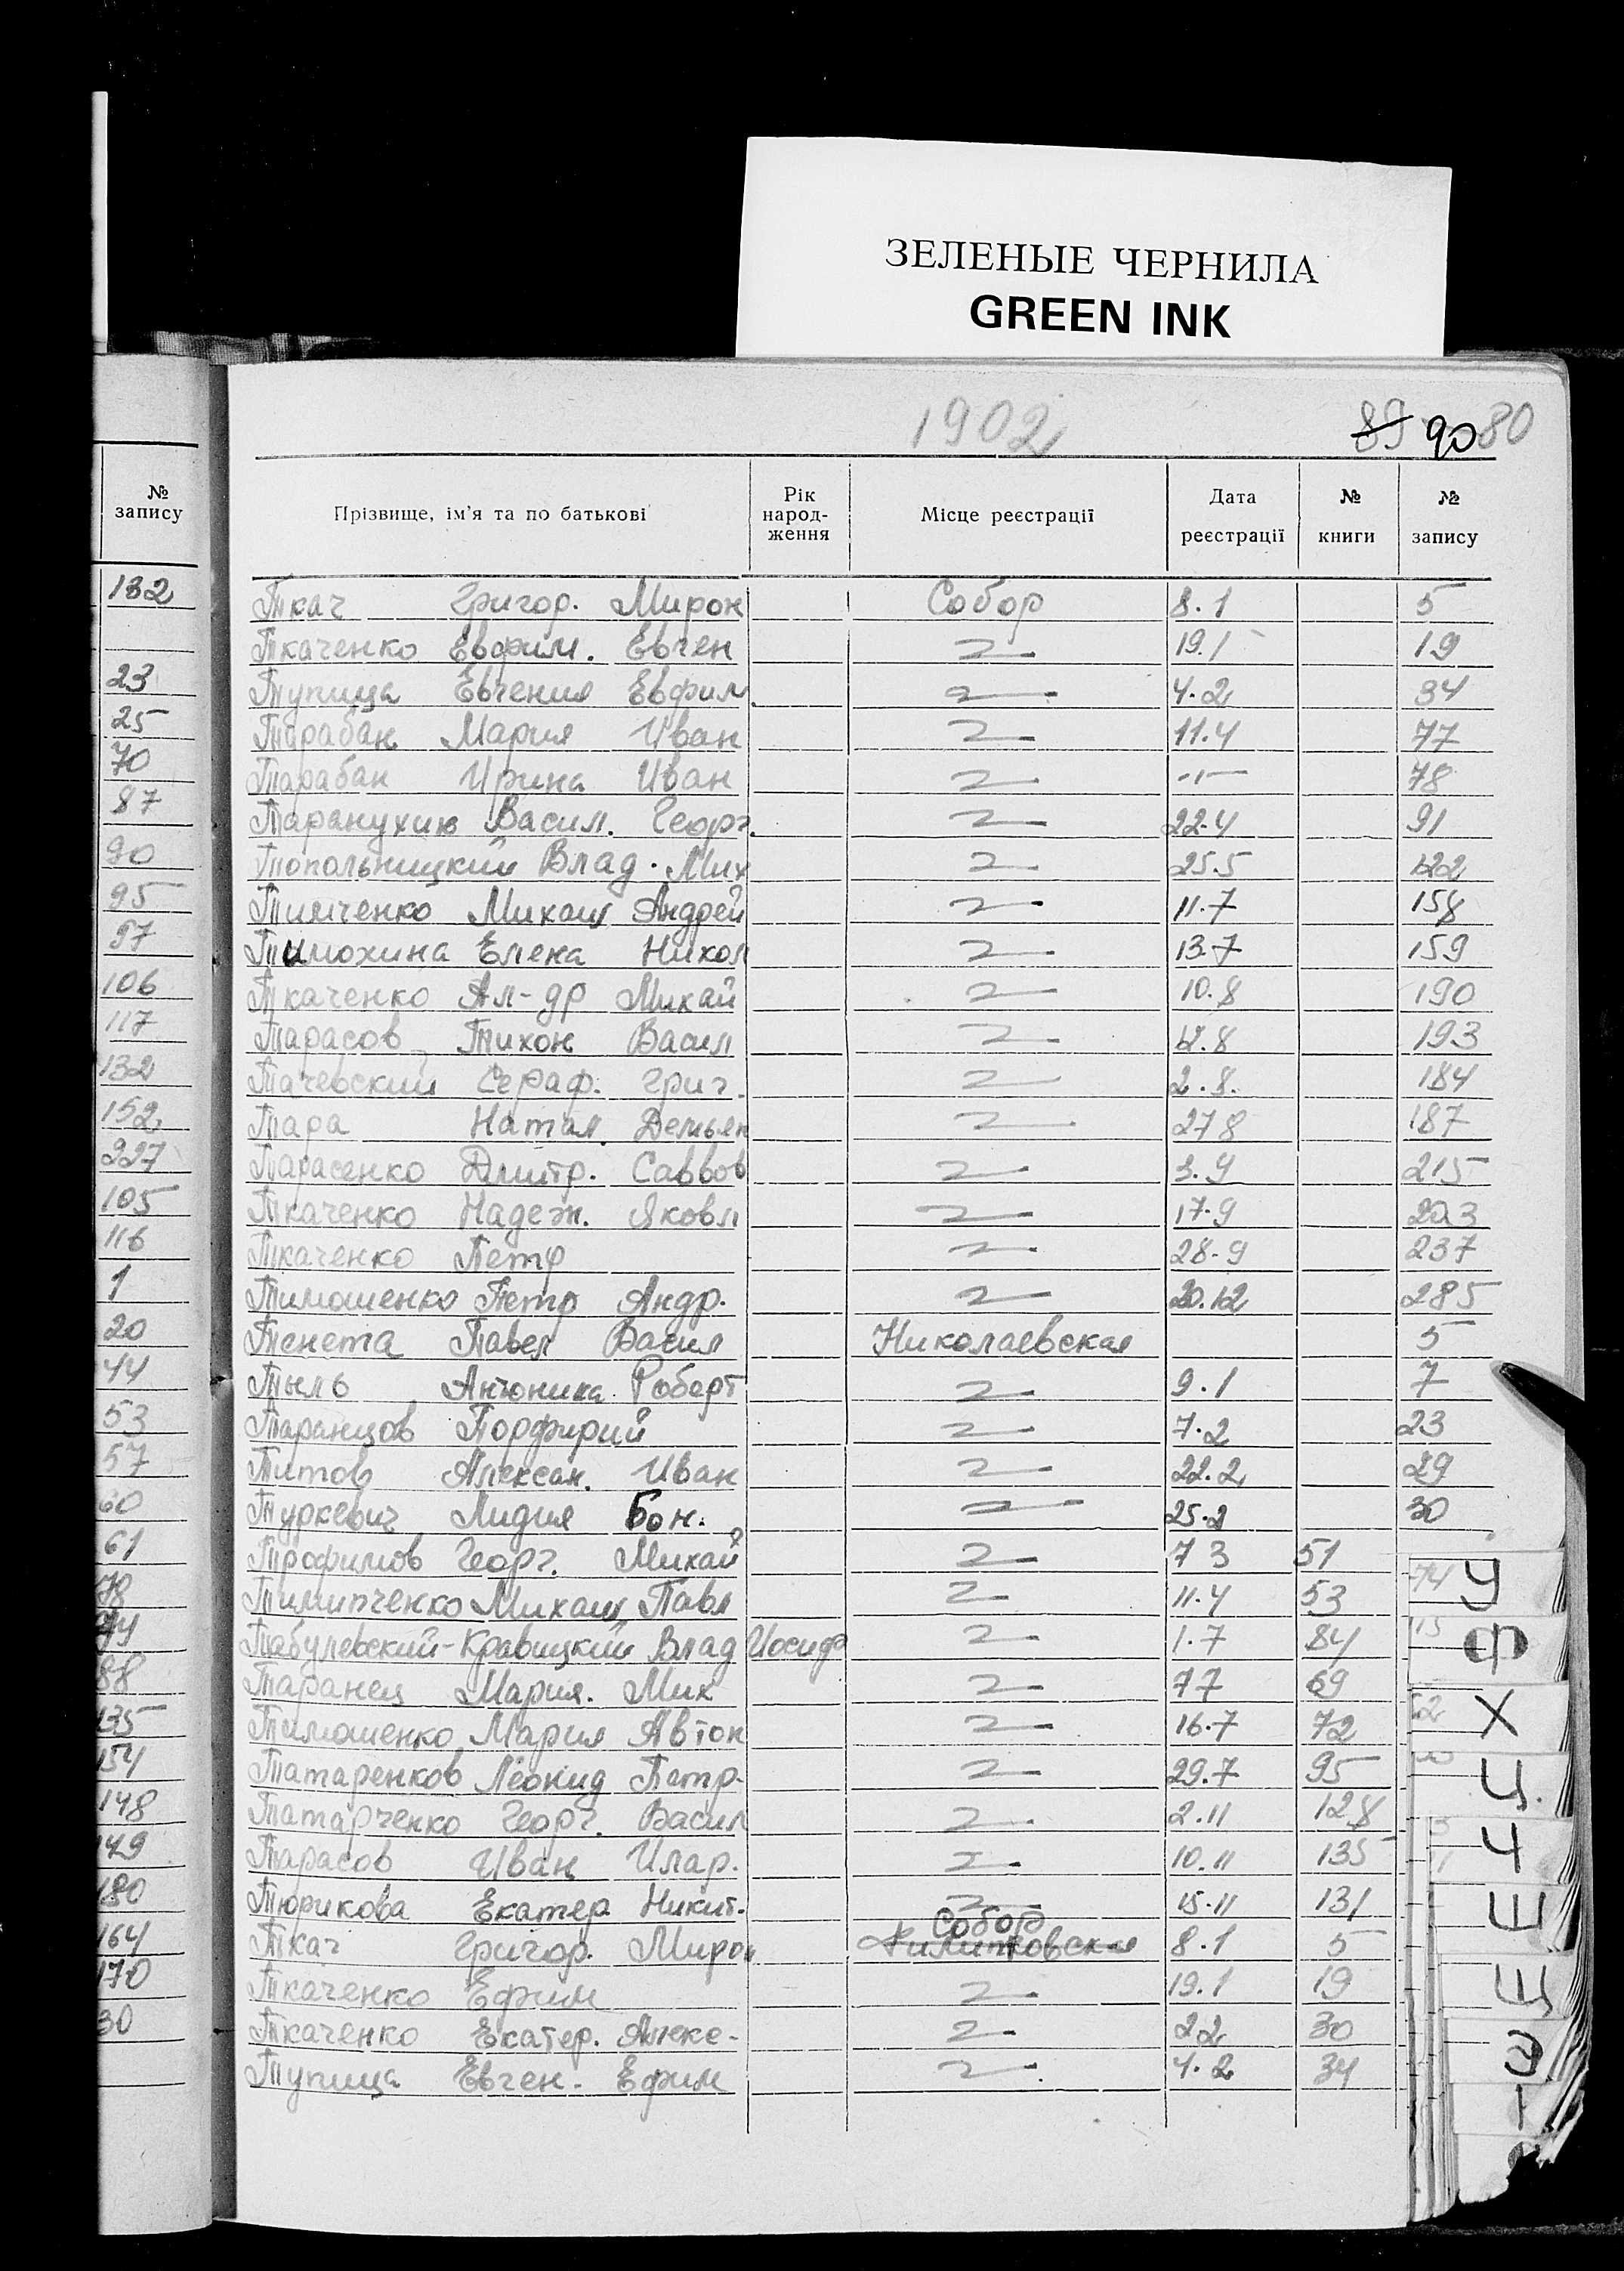 ЗЕЛЕНЫЕ ЧЕРНИЛА
GREEN INK
1902 89 90 80
№ запису
132
23
25
70
87
90
95
97
106
117
132
152
227
105
116
1
20
44
53
57
60
61
78
88
135
154
148
149
180
164
170
30
Прізвище, ім'я та по батькові Рік народ-ження Місце реєстрації Дата реєстрації № книги № запису
Ткач Григор. Мирон Собор 8.1 5
Ткаченко Евфим. Евген 19.1 19
Тупица Евгения Евфим. 4.2 34
Тарабан Мария Иван 11.4 77
Тарабан Ирина Иван -"- 78
Таранухин Васил. Георг. 22.4 91
Топольницкий Влад. Мих 25.5 122
Тимченко Михаил Андрей 11.7 158
Тимохина Елена Никол 13.7 159
Ткаченко Ал-др Михай 10.8 190
Тарасов Тихон Васил 12.8 193
Тачевский Сераф. Григ. 2.8. 184
Тара Натал. Демьян 27 8 187
Тарасенко Дмитр. Саввов 3.9 215
Ткаченко Надеж. Яковл 17.9 223
Ткаченко Петр 28.9 237
Тимошенко Петр Андр. 20.12 285
Тенета Павел Васил Николаевская 5
Тыль Антонина Роберт 9.1 7
Таранцов Порфирий 7.2 23
Титов Алексан. Иван 22.2 29
Туркевич Лидия Бон. 25.2 30
Трофимов Георг. Михай 7 3 51
Тимипченко Михаил Павл 11.4 53
Табулевский-Кравицкий Влад Иосиф 1.7 84
Таранец Мария. Мих 7 7 69
Тимошенко Мария Автон 16.7 72
Татаренков Леонид Петр. 29.7 95
Татарченко Георг. Васил 2.11 128
Тарасов Иван Илар. 10.11 135
Тюрикова Екатер Никит. 15.11 131
Ткач Григор. Мирон Собор 8.1 5
Ткаченко Ефим 19.1 19
Ткаченко Екатер. Алекс- 2 2 30
Тупица Евген. Ефим 4.2 34
У
Ф
Х
Ц
Ч
Ш
Щ
Э